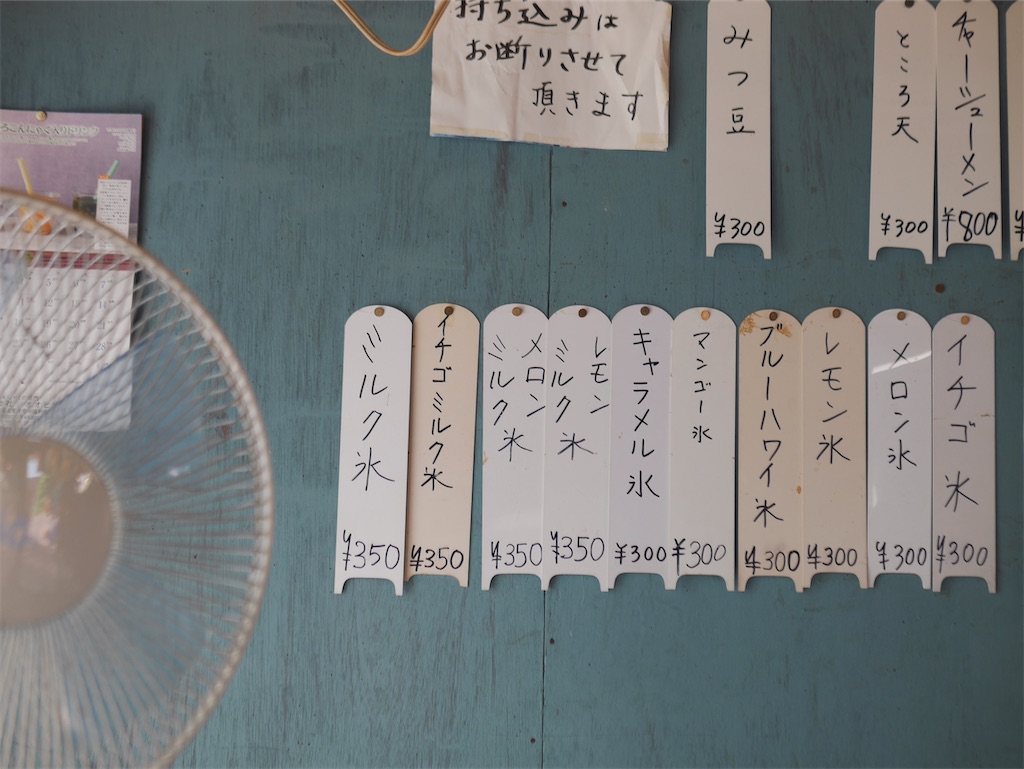 持ち込みは
お断りさせて
頂きます
チャーシューメン
¥800
ところ天
¥300
みつ豆
¥300
イチゴ氷
¥300
メロン氷
¥300
レモン氷
¥300
ブルーハワイ氷
¥300
マンゴー氷
¥300
キャラメル氷
¥300
レモン
ミルク氷
¥350
メロン
ミルク氷
¥350
イチゴミルク氷
¥350
ミルク氷
¥350